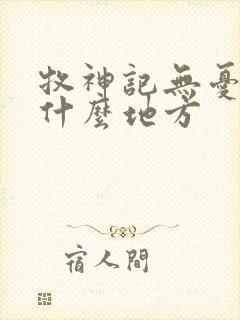 牧神記無憂
什麼地方
宿人間